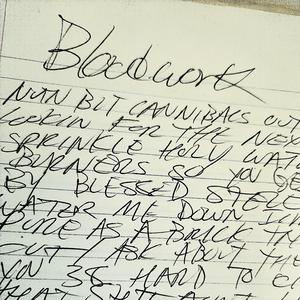 Bloodwork
NUN BUT CANNIBALS OUT
LOOKIN FOR THE NEX
SPRINKLE HOLY WAT
BURNERS SO YOU GE
BY BLESSED STEEL
WATER ME DOWN
PURE AS A BRICK IN
CUT I ASK ABOUT THE
YOU 38 HARD TO C
THAT SHIT AINT